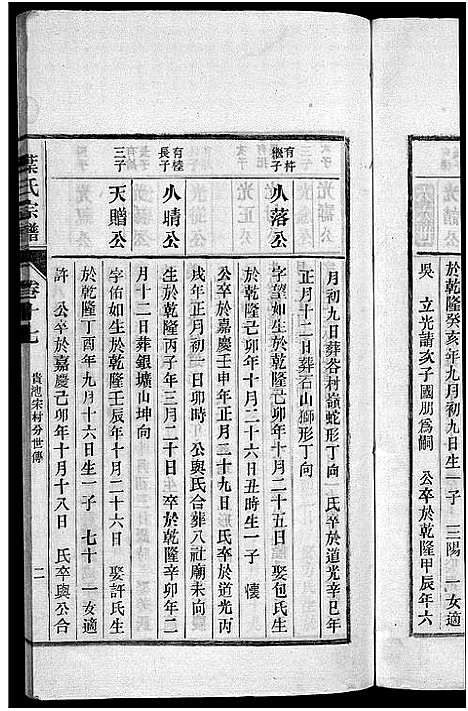 於乾隆癸亥年月初九日生一子 三陽 一女適
吳 立光請次子國朋為嗣 公卒於乾隆甲辰年六
月初九日葬谷村嶺蛇形丁向 氏卒於道光辛巳年
正月十二日葬石山獅形丁向
有杵
繼子
八落公
字望如生於乾隆己卯年十月二十五日 娶包氏生
於乾隆己卯年十二月二十六日丑時生一子 懷
公卒於嘉慶壬申年正月二十九日 氏卒於道光丙
戌年正月初一日卯時 公與氏合葬八社廟未向
有榛
長子
八晴公
生於乾隆丙子年三月二十日 卒於乾隆辛卯年二
月十二日葬銀壙山坤向
三子
天贈公
字佑如生於乾隆壬辰年十月二十六日 娶許氏生
於乾隆丁酉年九月十六日生一子 七十 一女適
許 公卒於嘉慶己卯年十月十八日 氏卒與公合
葉氏宗譜
卷十七
貴池宋村分世傳
二